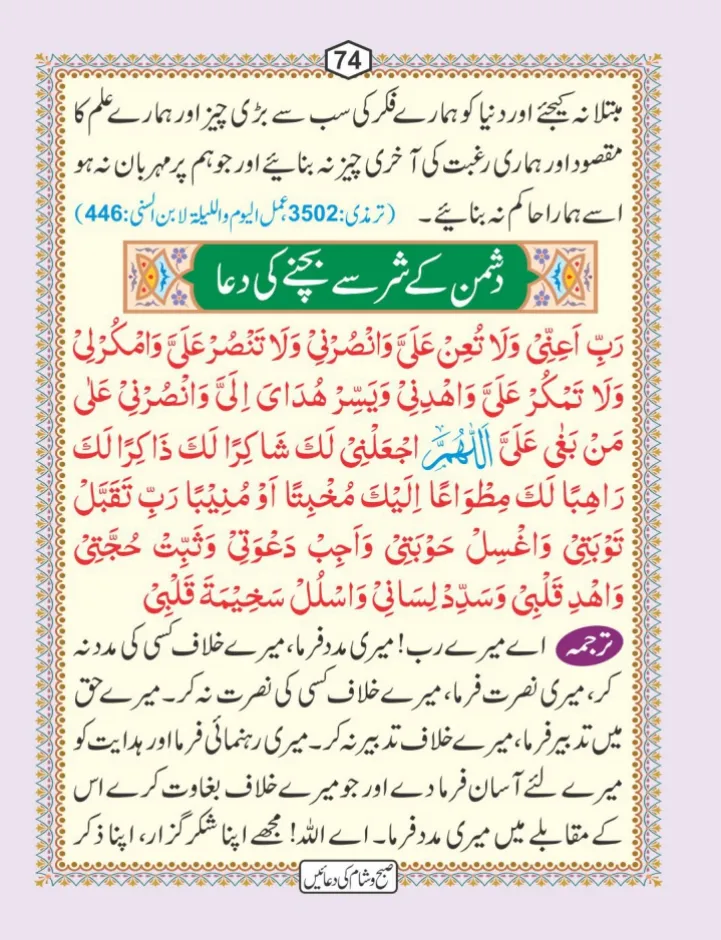 74
مبتلا نہ کیجئے اور دنیا کو ہمارے فکر کی سب سے بڑی چیز اور ہمارے علم کا
مقصود اور ہماری رغبت کی آخری چیز نہ بنائیے اور جو ہم پر مہربان نہ ہو
اسے ہمارا حاکم نہ بنائیے۔ (ترمذی:3502، عمل الیوم واللیلۃ لابن السنی:446)
دشمن کے شر سے بچنے کی دعا
رَبِّ اَعِنِّیْ وَلَا تُعِنْ عَلَیَّ وَانْصُرْنِیْ وَلَا تَنْصُرْ عَلَیَّ وَامْكُرْ لِیْ
وَلَا تَمْكُرْ عَلَیَّ وَاهْدِنِیْ وَیَسِّرْ هُدَایَ اِلَیَّ وَانْصُرْنِیْ عَلٰی
مَنْ بَغٰی عَلَیَّ اَللّٰهُمَّ اجْعَلْنِیْ لَكَ شَاكِرًا لَكَ ذَاكِرًا لَكَ
رَاهِبًا لَكَ مِطْوَاعًا اِلَیْكَ مُخْبِتًا اَوْ مُنِیْبًا رَبِّ تَقَبَّلْ
تَوْبَتِیْ وَاغْسِلْ حَوْبَتِیْ وَاَجِبْ دَعْوَتِیْ وَثَبِّتْ حُجَّتِیْ
وَاهْدِ قَلْبِیْ وَسَدِّدْ لِسَانِیْ وَاسْلُلْ سَخِیْمَةَ قَلْبِیْ
ترجمہ اے میرے رب! میری مدد فرما، میرے خلاف کسی کی مدد نہ
کر، میری نصرت فرما، میرے خلاف کسی کی نصرت نہ کر۔ میرے حق
میں تدبیر فرما، میرے خلاف تدبیر نہ کر۔ میری رہنمائی فرما اور ہدایت کو
میرے لئے آسان فرما دے اور جو میرے خلاف بغاوت کرے اس
کے مقابلے میں میری مدد فرما۔ اے اللہ! مجھے اپنا شکر گزار، اپنا ذکر
صبح و شام کی دعائیں